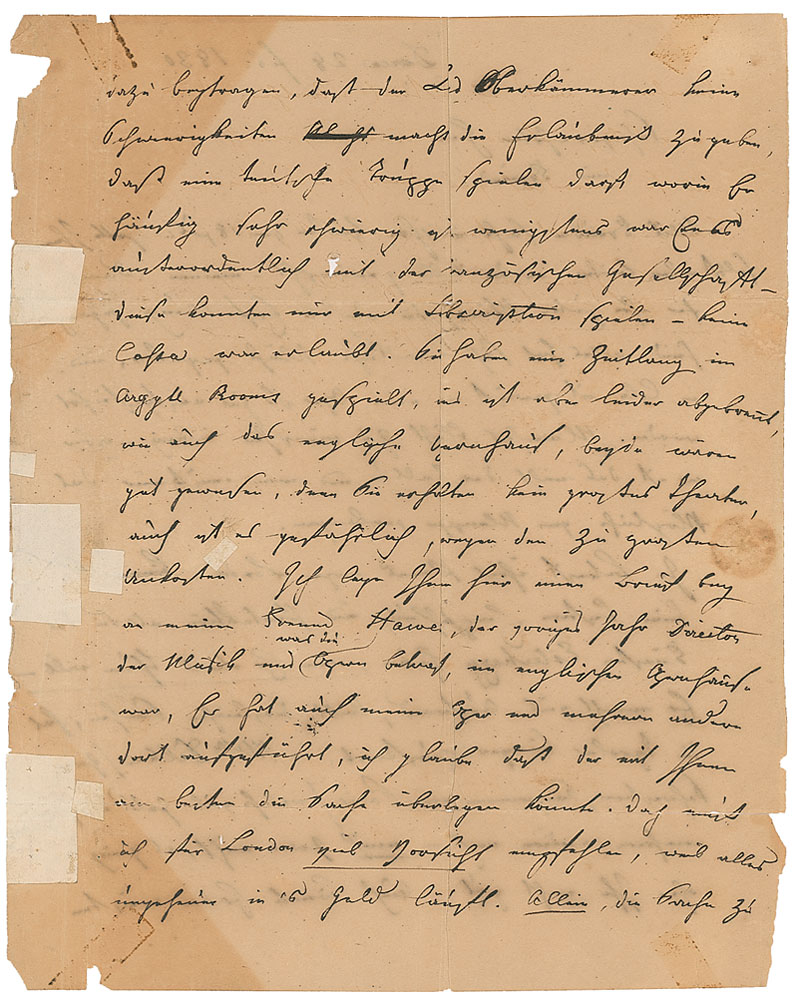 dazu beytragen, daß der Ld Oberkämmerer keine
Schwierigkeiten macht die Erlaubniß zu geben,
daß eine teutsche Truppe spielen darf worin Er
häufig sehr schwierig ist wenigstens war Er es
ausserordentlich mit der französischen Gesellschaft –
diese konnten nur mit Subscription spielen – keine
Cassa war erlaubt. Sie haben eine Zeitlang im
Argyll Rooms gespielt, ist aber leider abgebrannt,
wie auch das englische Opernhaus, beyde wären
gut gewesen, denn Sie erhalten kein großes Theater,
auch ist es gefährlich, wegen den zu großen
Unkosten. Ich lege Ihnen hier einen Brief bey
an meinen Freund Hawes, der voriges Jahr Director
der Musik und was die Opern betraf, im englischen Opernhause
war, Er hat auch meine Oper und mehrere andere
dort aufgeführt, ich glaube daß der mit Ihnen
am besten die Sache überlegen könnte. Doch muß
ich für London viel Vorsicht empfehlen, weil alles
ungeheuer in's Geld läuft. Allein, die Sache zu